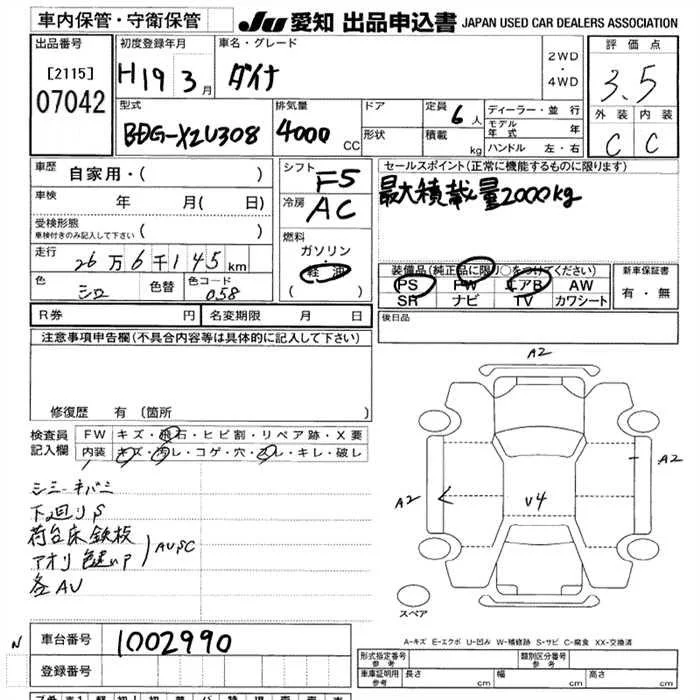 車内保管・守衛保管
JU 愛知 出品申込書 JAPAN USED CAR DEALERS ASSOCIATION
出品番号
[2115]
07042
初度登録年月
H19 3月
車名・グレード
ダイナ
2WD
・
4WD
評価点
3.5
外装 内装
C C
型式
BDG-XZU308
排気量
4000 CC
ドア
形状
定員 6人
積載 kg
ディーラー・並行
モデル年式 年
ハンドル 左・右
車歴 自家用・( )
車検 年 月( 日)
受検形態
車検付きのみ記入して下さい ( )
走行 26万6千145km
色 シロ
色替
色コード 058
シフト F5
冷房 AC
燃料
ガソリン
・
軽油
( )
セールスポイント(正常に機能するものに限ります)
最大積載量2000kg
装備品(純正品に限り○をつけてください)
PS PW エアB AW
SR ナビ TV カワシート
新車保証書
有・無
R券 円 名変期限 月 日
後日品
注意事項申告欄(不具合内容等は具体的に記入して下さい)
修復歴 有(箇所
検査員
記入欄
FW キズ・飛石・ヒビ割・リペア跡・X要
内装 キズ・汚レ・コゲ・穴・スレ・キレ・破レ
下廻りS
荷台床鉄板
各AU
A2
A2
A2
V4
スペア
A-キズ E-エクボ U-凹み W-補修跡 S-サビ C-腐食 XX-交換済
N
車台番号 1002990
登録番号
形式指定番号
参考
類別区分番号
参考
車庫証明用
参考
長さ cm 幅 cm 高さ cm